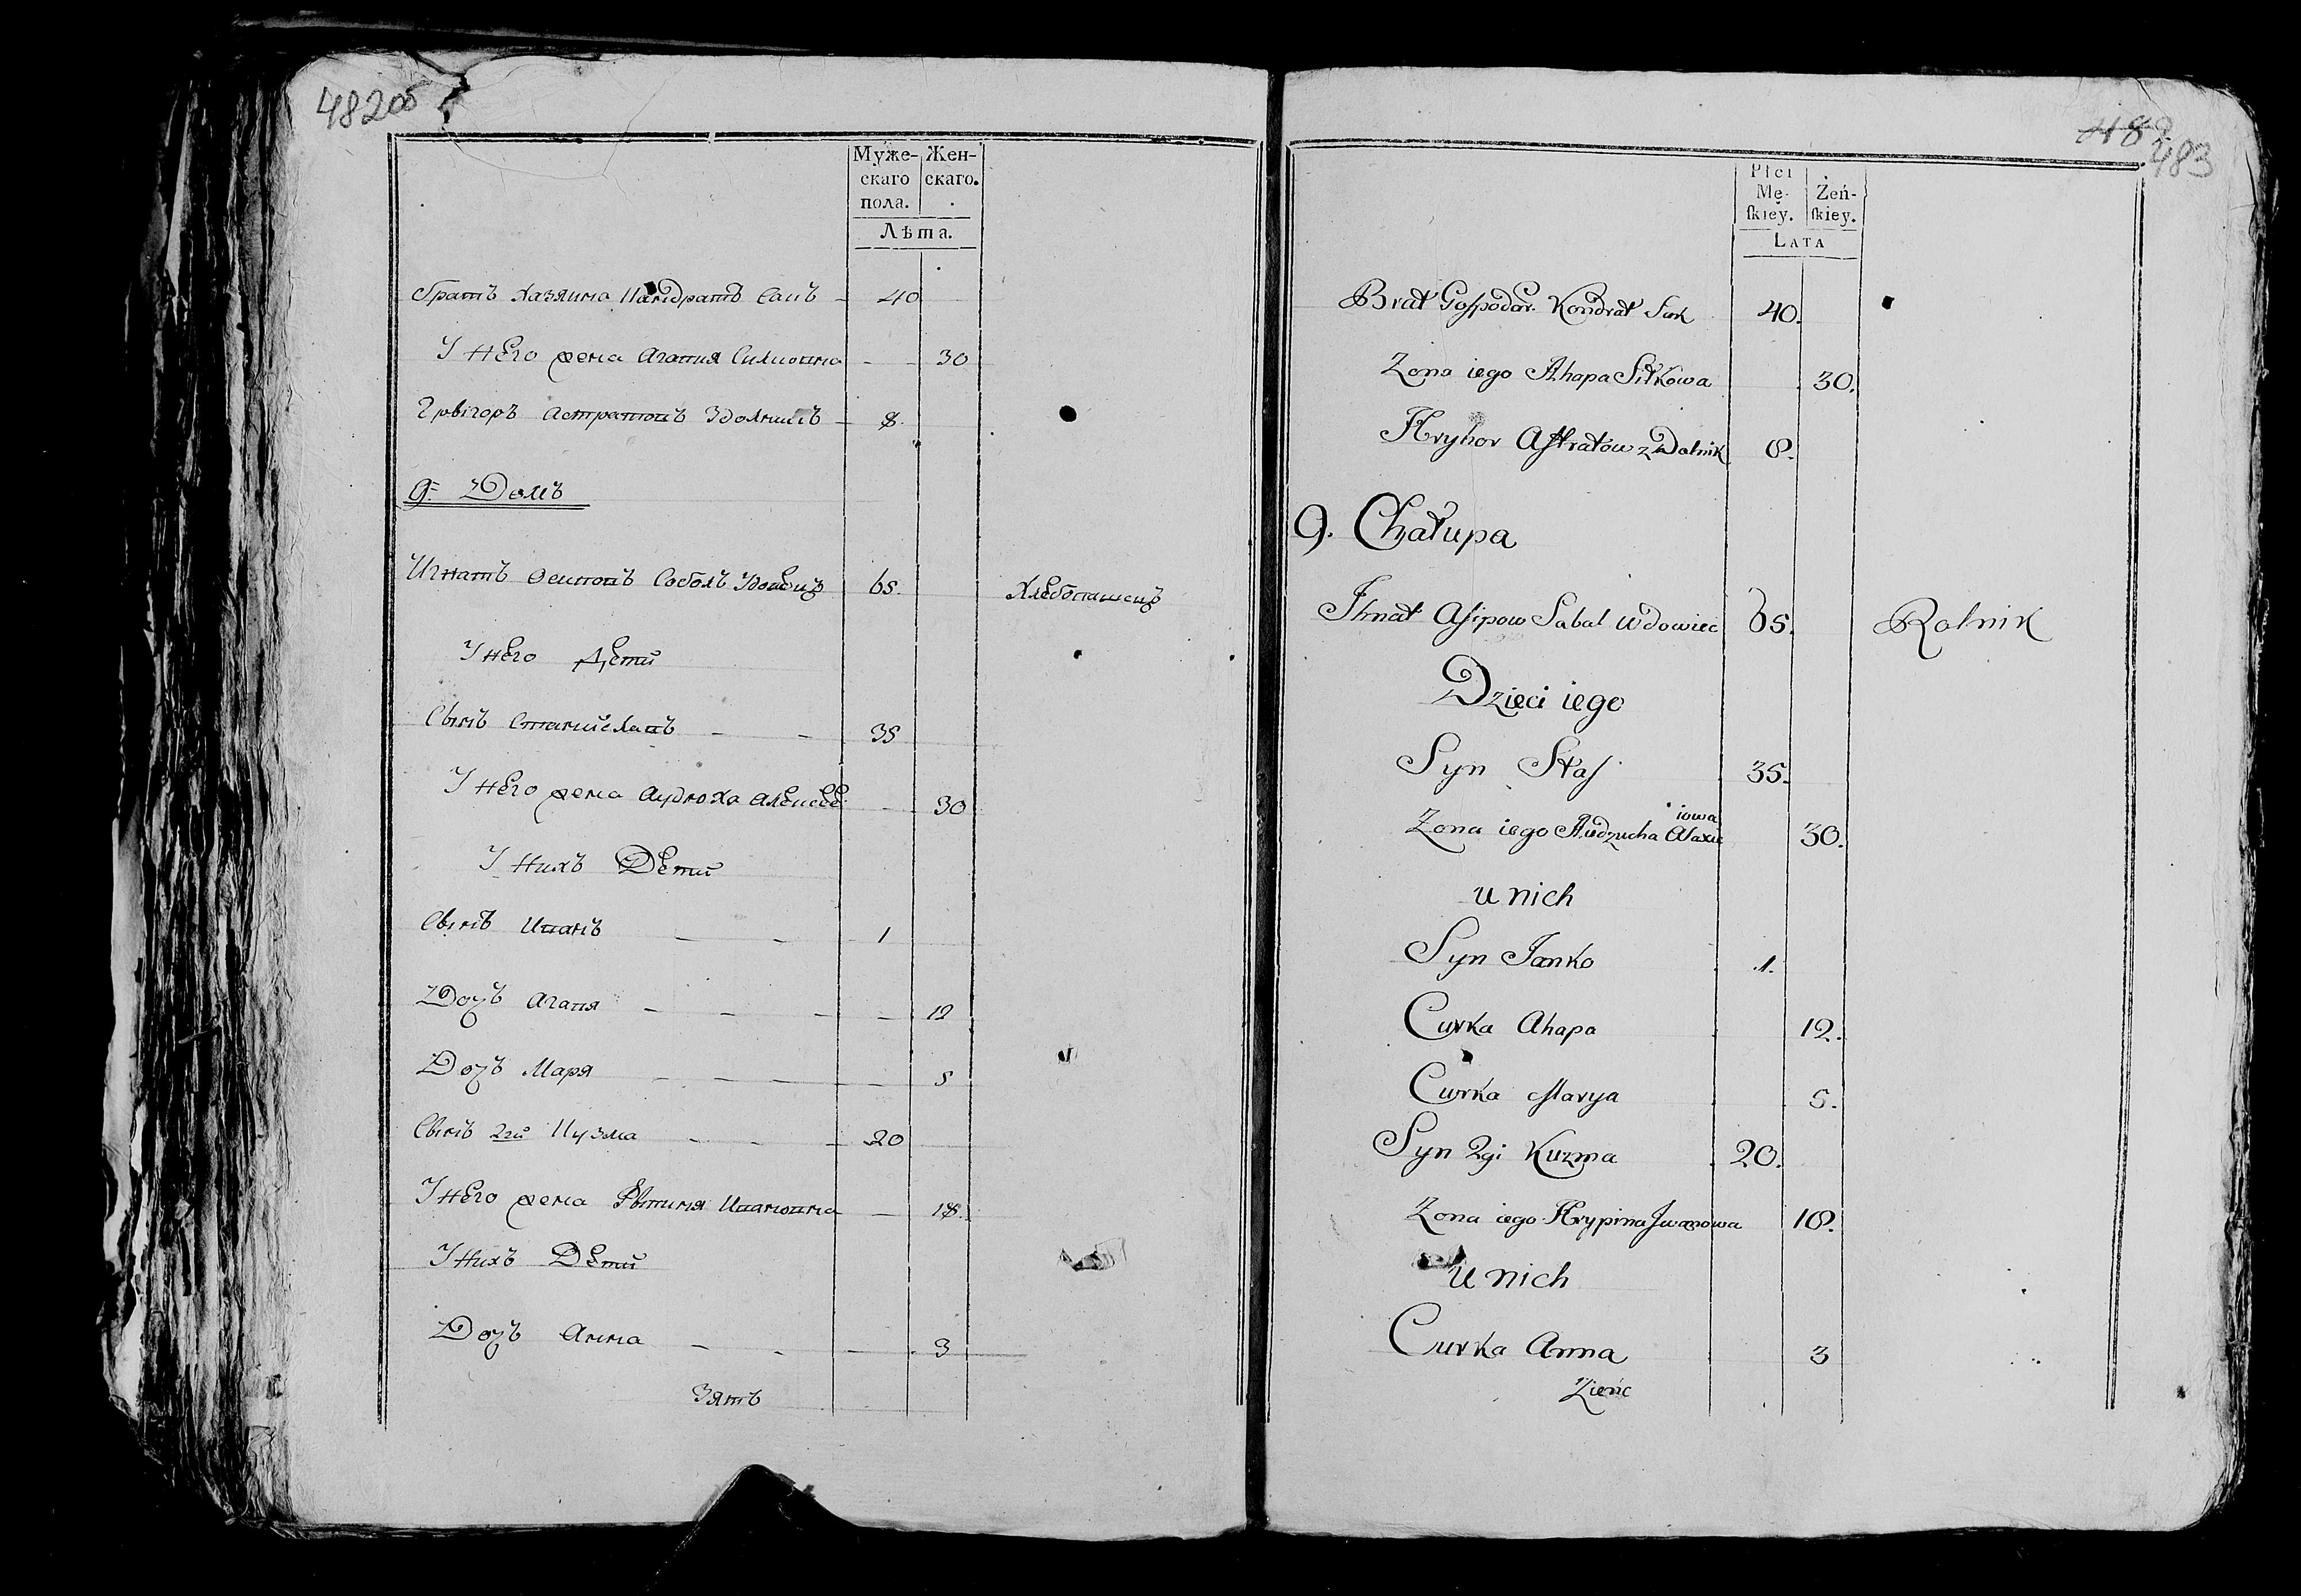 482об
Муже-
скаго
пола.
Жен-
скаго.
Лѣта.
братъ хазяина Кандратъ Сакъ 40
У него жена Агапия Силиовна 30
Гръıгоръ Астраповъ Здольникъ 8.
9. Домъ
Игнатъ Осиповъ Соболь Удовецъ 65. Хлебопашецъ
У него Дети
Сынъ Станиславъ 35
У него жена Аудюха Алексее 30
У нихъ Дети
Сынъ Иванъ 1
Дочь Агапя 12
Дочь Маря 5
Сынъ 2гй Кузма 20
У него жена Ивановна 18.
У нихъ Дети
Дочь Анна 3
Зять
483
Płci
Mę-
ſkiey.
Żeń-
ſkiey.
LATA
Brat Goſpodar. Kondrat Suk 40.
Zona iego Ahapa Siłkowa 30.
Hryhor Aſtratow zDolnik 8.
9. Chałupa
Ihnat Aſipow Sabal Wdowiec 65. Rolnik
Dzieci iego
Syn Staſ 35.
Zona iego Audzucha Alaxieiowa 30.
u nich
Syn Janko 1.
Curka Ahapa 12.
Curka Marya 5.
Syn 2gi Kuzma 20.
Zona iego Hrypina Jwanowa 18.
u nich
Curka Anna 3
Zienc